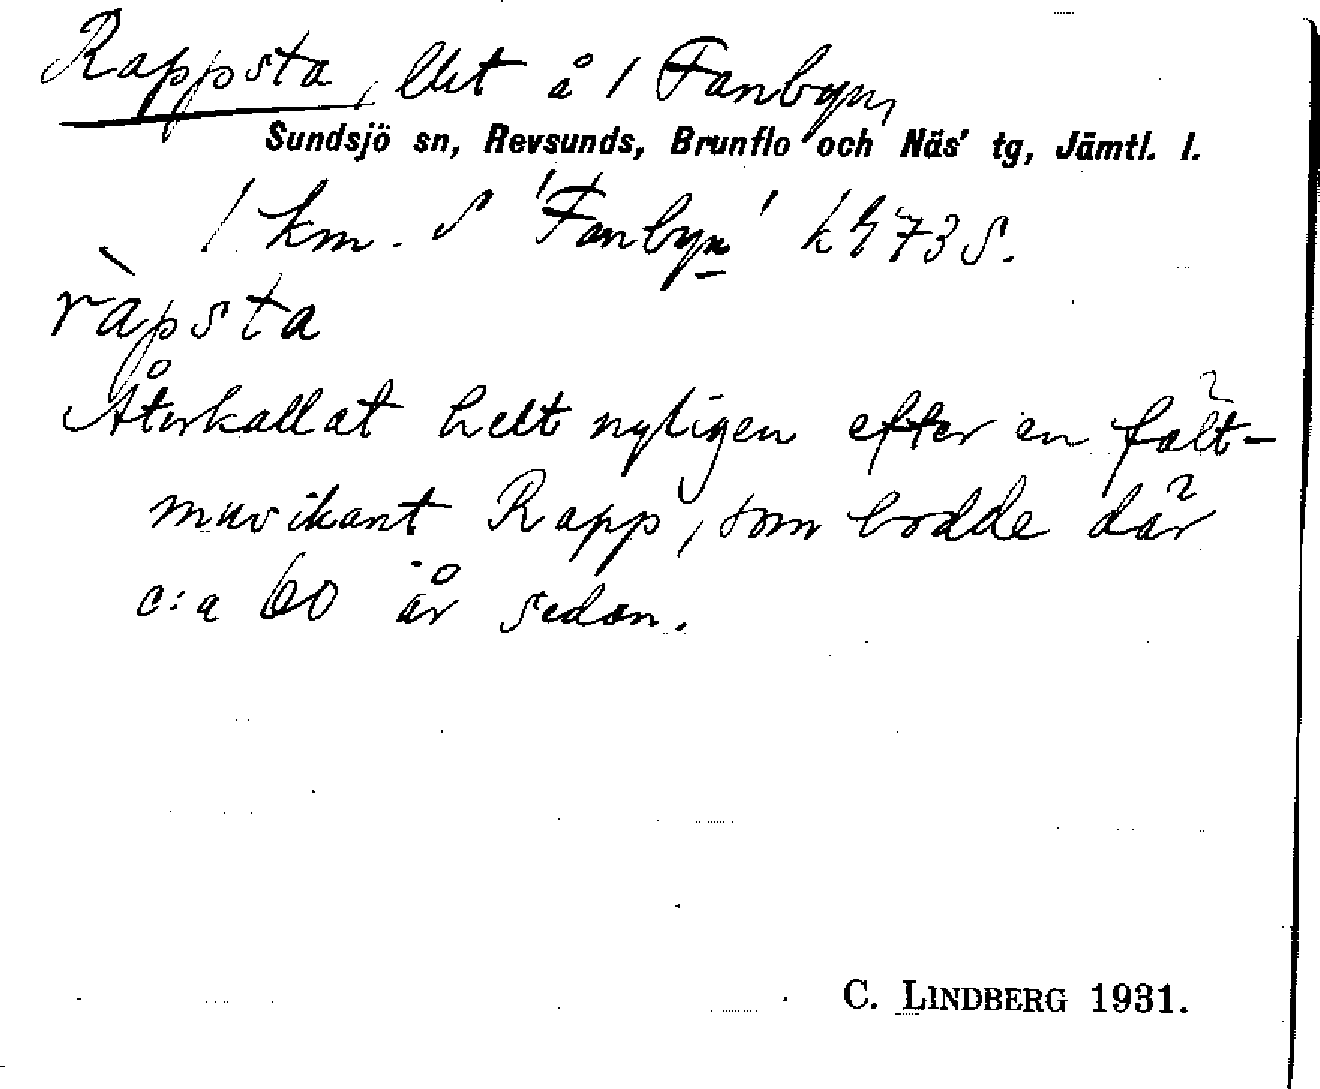 Rappsta, lht å 1 Fanbyn,
Sundsjö sn, Revsunds, Brunflo och Näs' tg, Jämtl. l.
1 km. S 'Fanbyn' k 473 S.
ràpsta
Återkallat helt nyligen efter en fält-
musikant Rapp, som bodde där
c:a 60 år sedan.
C. LINDBERG 1931.